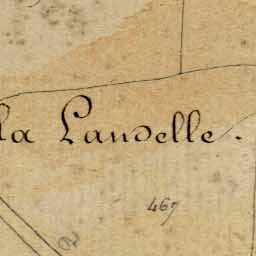 la Landelle.
467